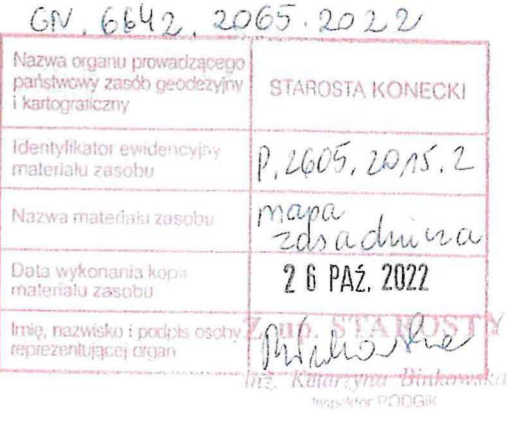 GN.6642.2065.2022
Nazwa organu prowadzącego
państwowy zasób geodezyjny
i kartograficzny
STAROSTA KONECKI
Identyfikator ewidencyjny
materiału zasobu
P.2605.2015.2
Nazwa materiału zasobu
mapa
zasadnicza
Data wykonania kopii
materiału zasobu
26 PAŹ. 2022
Imię, nazwisko i podpis osoby
reprezentującej organ
Z up. STAROSTY
inż. Katarzyna Binkowska
Inspektor PODGiK